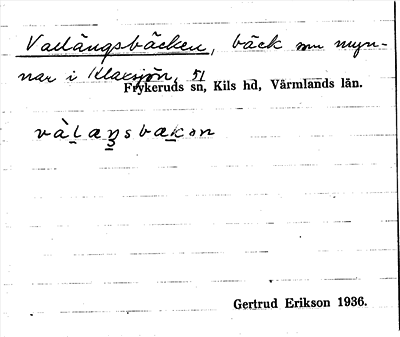 Vallängsbäcken, bäck som myn-
nar i Klaxsjön, 51
Frykeruds sn, Kils hd, Värmlands län.
Gertrud Erikson 1936.